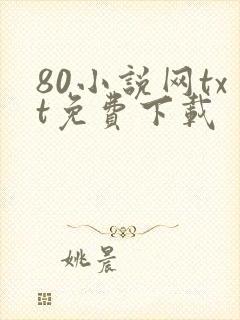 80小説网tx
t免費下載
姚晨